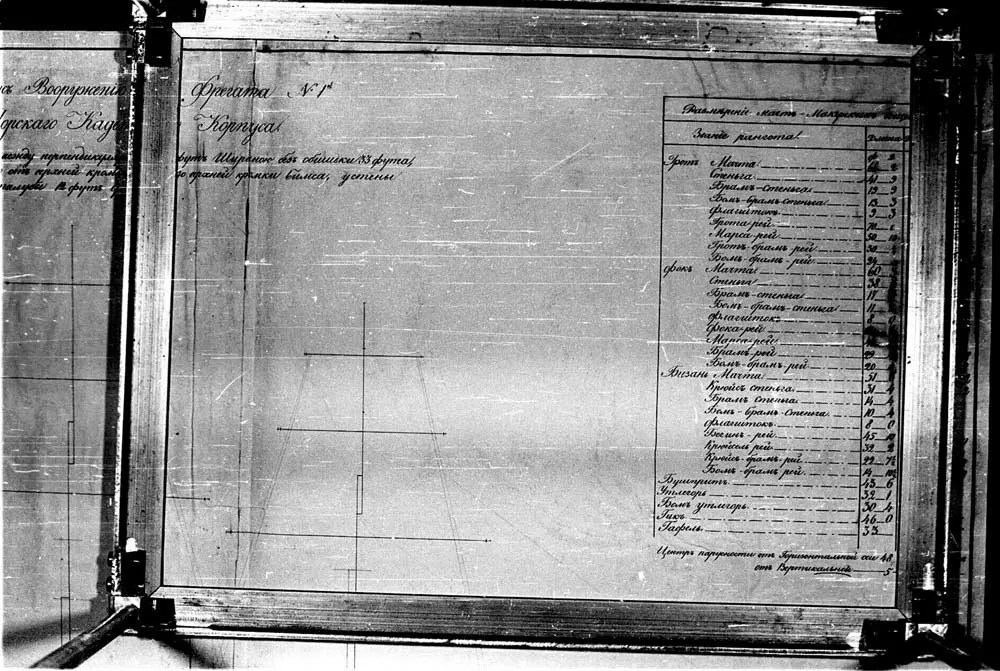 Вооруженію Фрегата № 1й
орскаго Каде Корпуса
между перпендикул футъ Шириною безъ обшивки 33 фута,
отъ крайней кром крайней кромки вимса, устены
12 футъ
Размѣреніе мачтъ
Званіе рангоута.
Гротъ Мачта
Стеньга 41 9
Брамъ-стеньга 19 9
Бомъ-брамъ-стеньга 13 3
флагштокъ 9 3
Грота-рей 70
Марса-рей 50 10
Гротъ-брамъ-рей 30
Бомъ-брамъ-рей 24
фокъ Мачта 60
Стеньга 38
Брамъ-стеньга 17
Бомъ-брамъ-стеньга 11
флагштокъ 8 0
Фока-рей
Марса-рей
Брамъ-рей 29
Бомъ-брамъ-рей 20
Бизань Мачта 51
Крюйсъ стеньга 31 4
Брамъ стеньга 14 4
Бомъ-брамъ-стеньга 10 4
флагштокъ 8 0
Бегинъ-рей 45 10
Крюйсель рей 32 2
Крюйсъ-брамъ-рей 22 7½
Бомъ-брамъ рей 14 10½
Бушпритъ 43 6
Утлегорь 32 1
Бомъ утлегорь 30 4
Гикъ 46 0
Гафель 33
Центръ парусности отъ Горизонтальной оси 48
отъ Вертикальной 5